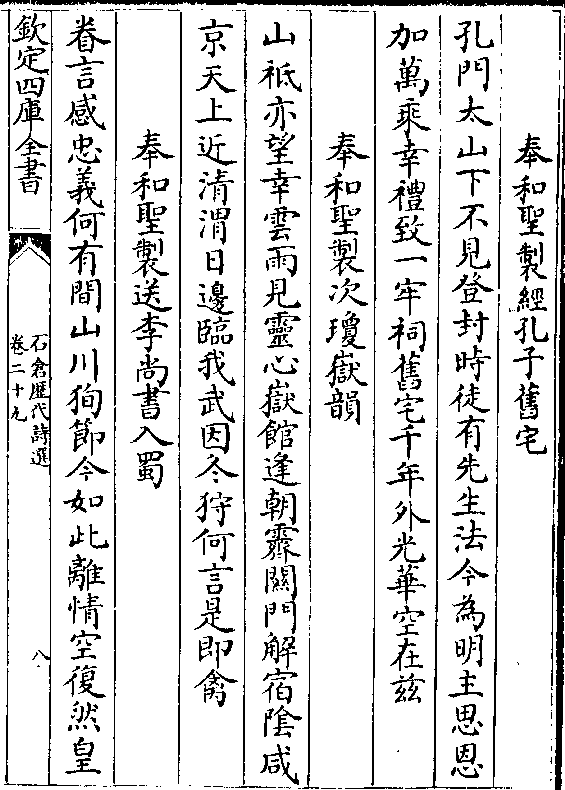 奉和聖製經孔子舊宅
孔門太山下不見登封時徒有先生法今為明主思恩
加萬乘幸禮致一牢祠舊宅千年外光華空在兹
奉和聖製次瓊嶽韻
山祗亦望幸雲雨見靈心嶽館逢朝霽關門解宿陰咸
京天上近清渭日邊臨我武因冬狩何言是即禽
奉和聖製送李尚書入蜀
眷言感忠義何有間山川狥節今如此離情空復然皇
欽定四庫全書
石倉歷代詩選
卷二十九
八